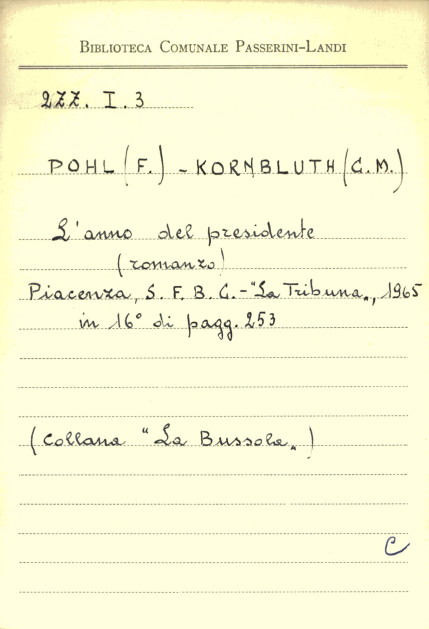 BIBLIOTECA COMUNALE PASSERINI-LANDI
2ZZ. I. 3
POHL (F.) - KORNBLUTH (C.M.)
L'anno del presidente
(romanzo)
Piacenza, S. F. B. C. - "La Tribuna„, 1965
in 16° di pagg. 253
(Collana "La Bussola„)
C